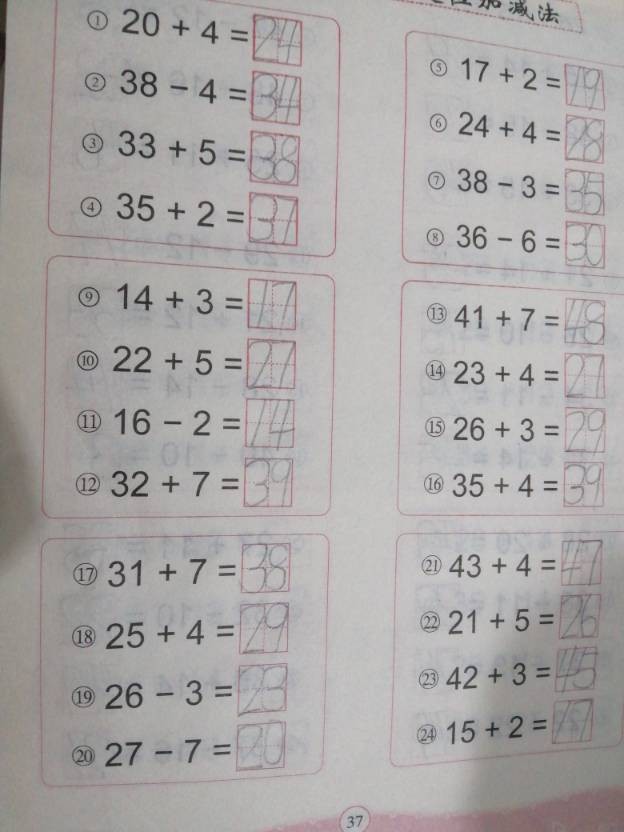 加减法
① 20 + 4 = 24
② 38 − 4 = 34
③ 33 + 5 = 38
④ 35 + 2 = 37
⑤ 17 + 2 = 19
⑥ 24 + 4 = 28
⑦ 38 − 3 = 35
⑧ 36 − 6 = 30
⑨ 14 + 3 = 17
⑩ 22 + 5 = 27
⑪ 16 − 2 = 14
⑫ 32 + 7 = 39
⑬ 41 + 7 = 48
⑭ 23 + 4 = 27
⑮ 26 + 3 = 29
⑯ 35 + 4 = 39
⑰ 31 + 7 = 38
⑱ 25 + 4 = 29
⑲ 26 − 3 = 23
⑳ 27 − 7 = 20
㉑ 43 + 4 = 47
㉒ 21 + 5 = 26
㉓ 42 + 3 = 45
㉔ 15 + 2 = 17
37